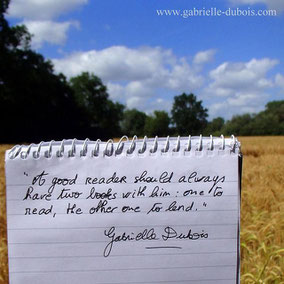 www.gabrielle-dubois.com
"A good reader should always
have two books with him : one to
read, the other one to lend."
Gabrielle Dubois